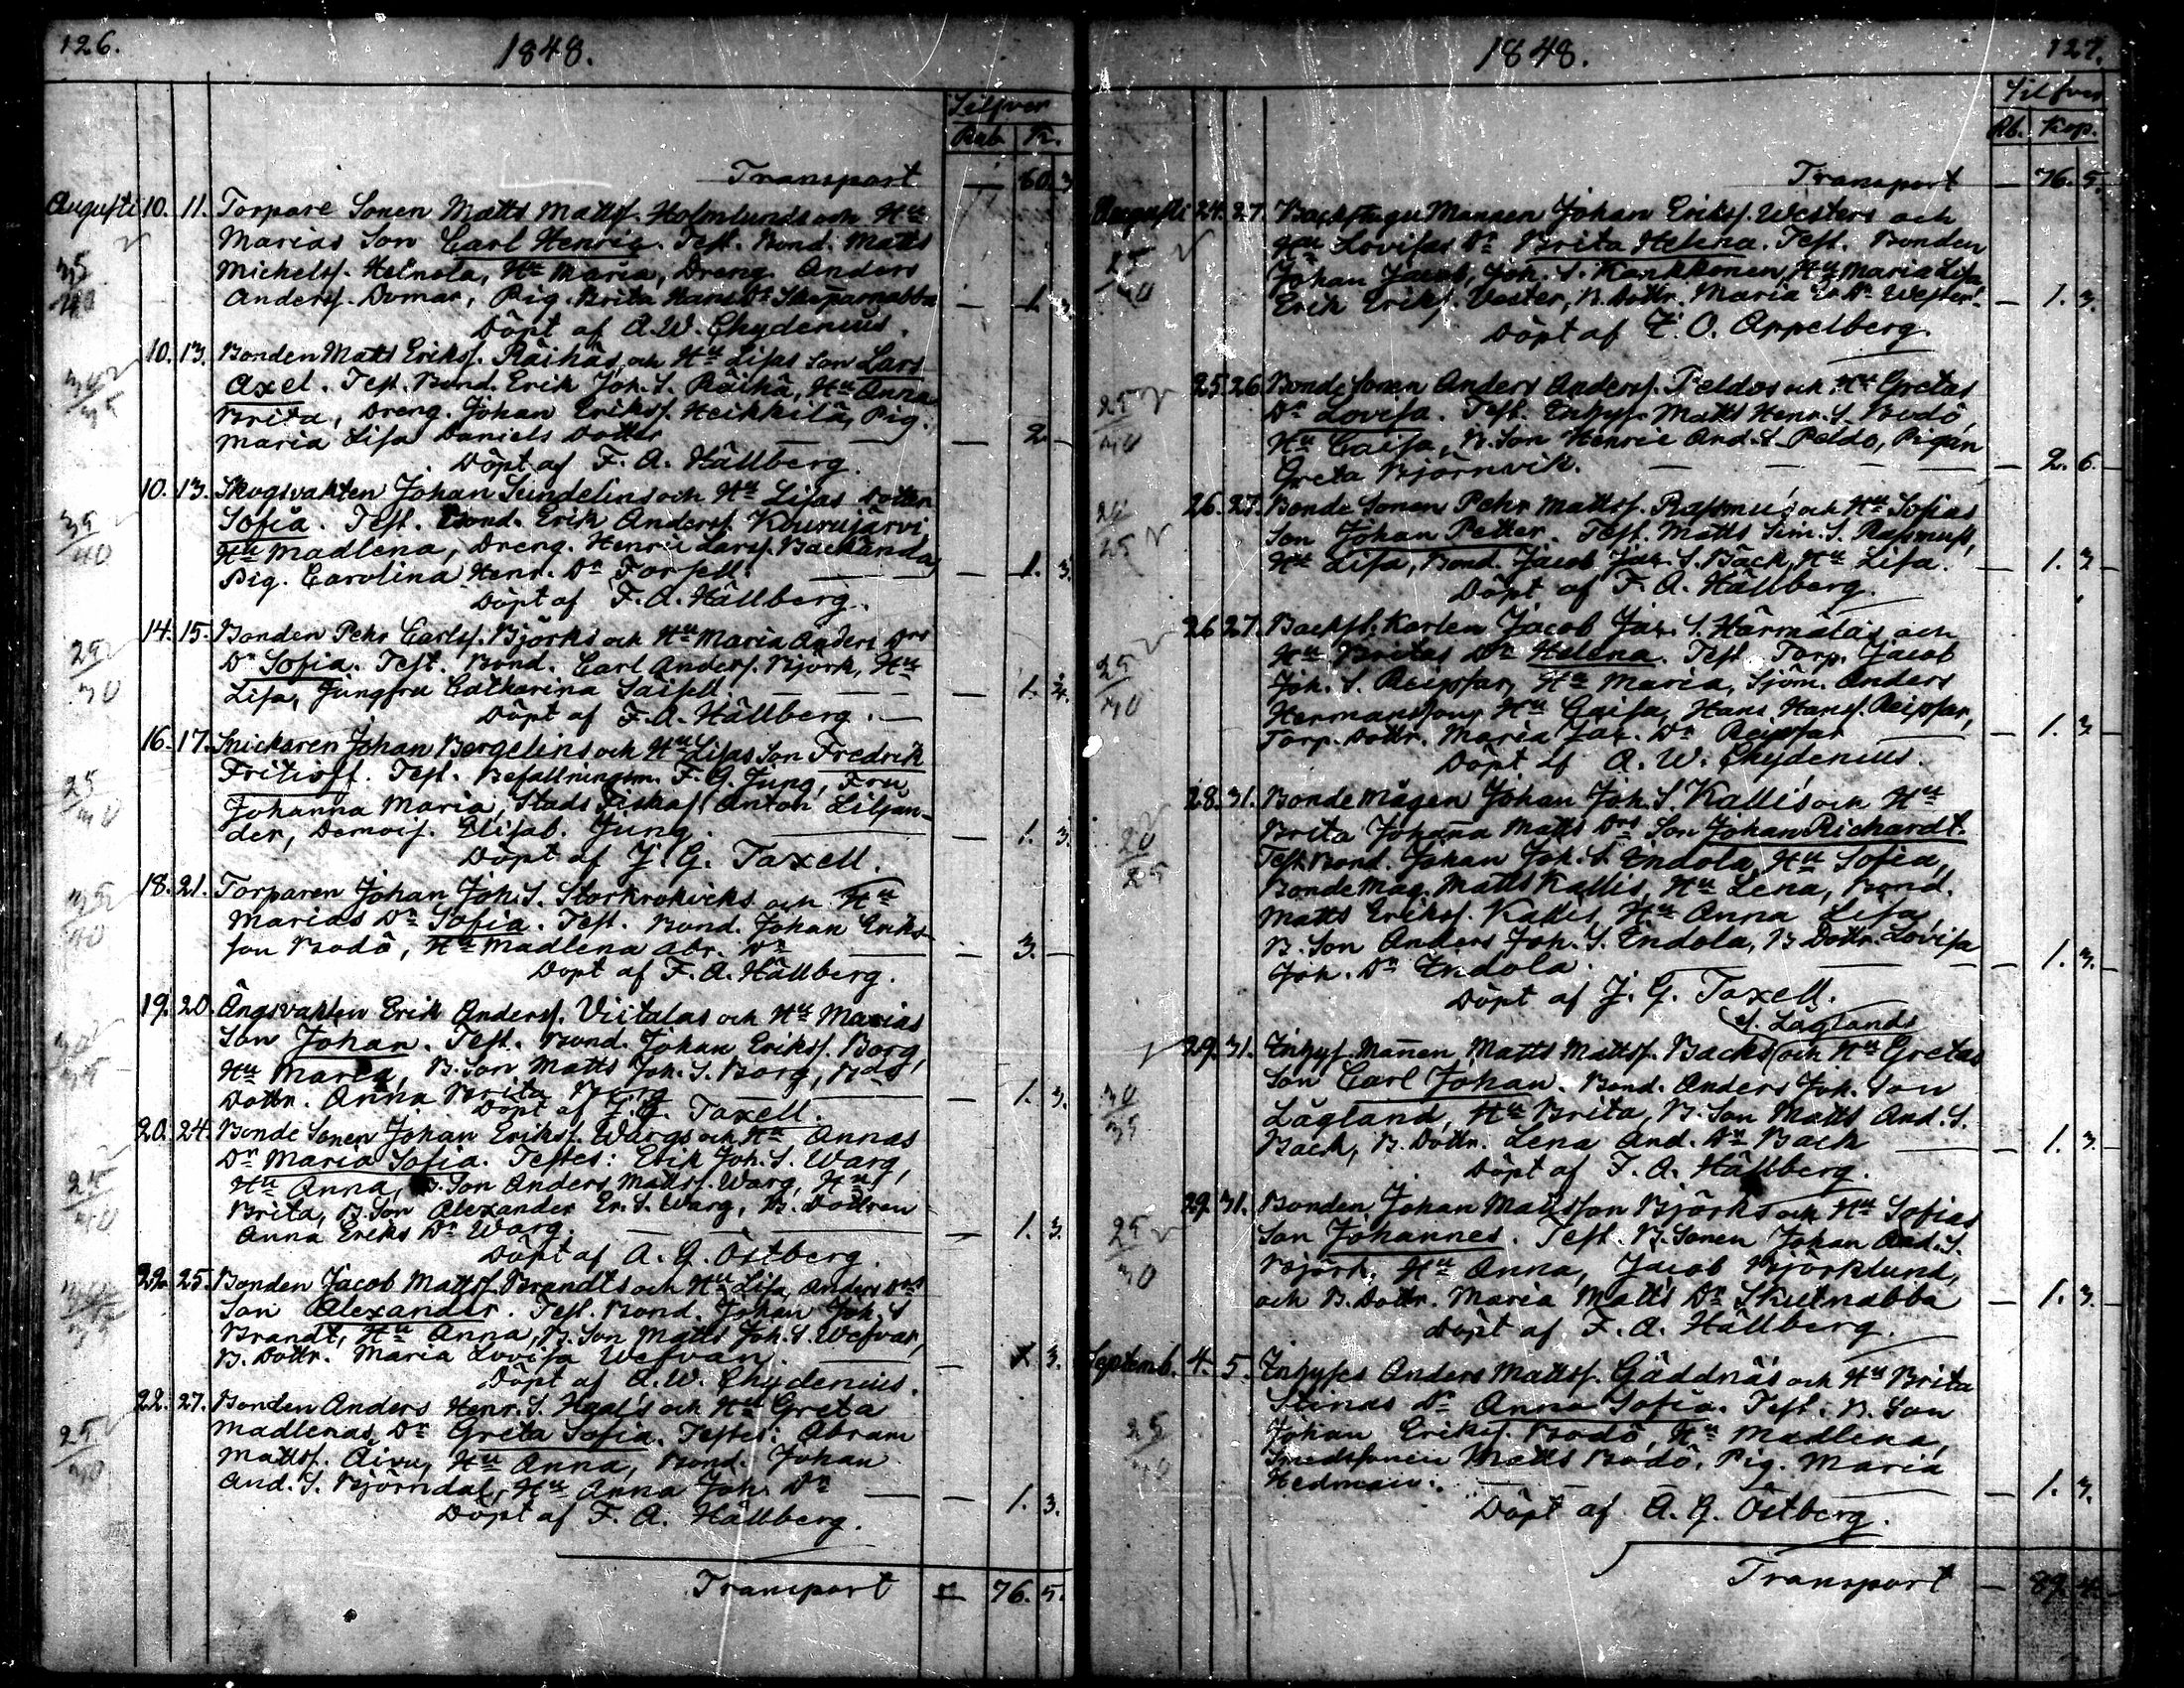 126.
1848.
Silfver
Rub K.
Transport — 60. 3
Augusti 10. 11. Torpare Sonen Matts Mattss. Holmlunds och Hu
Marias Son Carl Henric. Test. Bond. Matts
35
40
Michelss. Heinola, Hu Maria, Dreng. Anders
Anderss. Domar, Pig. Brita Hans Dr Skoparnabba — 1. 3
Döpt af A. W. Chydenius.
10. 13. Bonden Matts Erikss. Räihäs och Hu Lisas Son Lars
Axel. Test. Bond. Erik Joh. S. Räihä, Hu Anna
Brita, Dreng. Johan Erikss. Heikkilä, Pig.
Maria Lisa Daniels Dotter — 2. —
Döpt af F. A. Hällberg.
10. 13. Skogsvakten Johan Sundelins och Hu Lisas Dotter
Sofia. Test. Bond. Erik Anderss. Kourujärvi,
35
40
Hu Madlena, Dreng. Henric Larss. Backända,
Pig. Carolina Henr. Dr Forsell. — 1. 3.
Döpt af F. A. Hällberg.
14. 15. Bonden Pehr Carlss. Björks och Hu Maria Anders Drs
Dr Sofia. Test. Bond. Carl Anderss. Björk, Hu
25
30
Lisa, Jungfru Catharina Saisell. — 1.
Döpt af F. A. Hällberg. —
16. 17. Snickaren Johan Bergelins och Hu Lisas Son Fredrik
Fritioff. Test. Befallningsm. F. G. Jung, Fru
25
30
Johanna Maria, Stads Fiskal Anton Liljan-
der, Demois. Elisab. Jung. — 1. 3.
Döpt af J. G. Taxell.
18. 21. Torparen Johan Joh. S. Storkrokviks och Hu
Marias Dr Sofia. Test. Bond. Johan Eriks-
35
40
son Bodö, Hu Madlena Abr. Dr — 3. —
Döpt af F. A. Hällberg.
19. 20. Ängsvakten Erik Anderss. Viitalas och Hu Marias
Son Johan. Test. Bond. Johan Erikss. Borg,
Hu Maria, B. Son Matts Joh. S. Borg, Bds
Dottr. Anna Brita Borg — 1. 3.
Döpt af J. G. Taxell.
20. 24. Bonde Sonen Johan Erikss. Wargs och Hu Annas
Dr Maria Sofia. Testes: Erik Joh. S. Warg,
25
30
Hu Anna, B. Son Anders Mattss. Warg, Hu
Brita, B. Son Alexander Er. S. Warg, B. Dottren
Anna Eriks Dr Warg. — 1. 3.
Döpt af A. G. Östberg.
22. 25. Bonden Jacob Mattss. Brandts och Hu Lisa Anders Drs
Son Alexander. Test. Bond. Johan Joh. S
Brandt, Hu Anna, B. Son Matts Joh. S. Wesvar,
B. Dottr. Maria Lovisa Wesvan. — 1. 3.
Döpt af A. W. Chydenius.
22. 27. Bonden Anders Henr. S. Haals och Hu Greta
Madlenas Dr Greta Sofia. Testes: Abram
25
30
Mattss. Aivu, Hu Anna, Bond. Johan
And. S. Björndal, Hu Anna Joh. Dr — 1. 3.
Döpt af F. A. Hällberg.
Transport — 76. 5.
1848.
127.
Silfver
Rb. Kop.
Transport — 76. 5.
Augusti 24. 27. Backstugu Mannen Johan Erikss. Westers och
Hu Lovisas Dr Brita Helena. Test. Bonden
25
30
Johan Jacob, Joh. S. Karkkonen, Hu Maria Lisa,
Erik Erikss. Vester, B. Dottr. Maria Er. Dr Wester. — 1. 3.
Döpt af E. O. Appelberg.
25. 26. Bonde Sonen Anders Anderss. Peldos och Hu Gretas
Dr Lovisa. Test. Inhys. Matts Henr. S. Bodö,
25
30
Hu Caisa, B. Son Henric And. S. Peldo, Pigan
Greta Björnvik. — 2. 6.
26. 27. Bonde Sonen Pehr Mattss. Rasmus och Hu Sofias
Son Johan Petter. Test. Matts Sim. S. Rasmuss,
Hu Lisa, Bond. Jacob Jac. S. Bäck, Hu Lisa. — 1. 3
Döpt af F. A. Hällberg.
26. 27. Backst. Karlen Jacob Jac. S. Härmäläs och
Hu Britas Dr Helena. Test. Torp. Jacob
25
30
Joh. S. Reipsar, Hu Maria, Sjöm. Anders
Hermansson, Hu Caisa, Hans Hanss. Reipsar,
Torp. Dottr. Maria Jac. Dr Reipsar — 1. 3
Döpt af A. W. Chydenius.
28. 31. Bonde Mågen Johan Joh. S. Kallis och Hu
Brita Johana Matts Drs Son Johan Richardt.
20
25
Test. Bond. Johan Joh. S. Indola, Hu Sofia,
Bonde Mag. Matts Kallis, Hu Lena, Bond.
Matts Erikss. Kallis, Hu Anna Lisa,
B. Son Anders Joh. S. Indola, B. Dottr. Lovisa
Joh. Dr Indola. — 1. 3.
Döpt af J. G. Taxell.
Läglands
29. 31. Inhys. Mannen Matts Mattss. Backs och Hu Gretas
Son Carl Johan. Bond. Anders Joh. Son
30
35
Lägland, Hu Brita, B. Son Matts And. S.
Back, B. Dottr. Lena And. Dr Back — 1. 3.
Döpt af F. A. Hällberg.
29. 31. Bonden Johan Mattsson Björks och Hu Sofias
Son Johannes. Test. B. Sonen Johan And. S.
25
30
Björk, Hu Anna, Jacob Björklund,
och B. Dottr. Maria Matts Dr Skutnabba — 1. 3.
Döpt af F. A. Hällberg.
Septemb. 4. 5. Inhyses Anders Mattss. Gäddnäs och Hu Brita
Stinas Dr Anna Sofia. Test. B. Son
25
30
Johan Erikss. Bodö, Hu Madlena,
Smedsonen Matts Bodö, Pig. Maria
Hedman. — 1. 3.
Döpt af A. G. Östberg.
Transport — 89. 4.